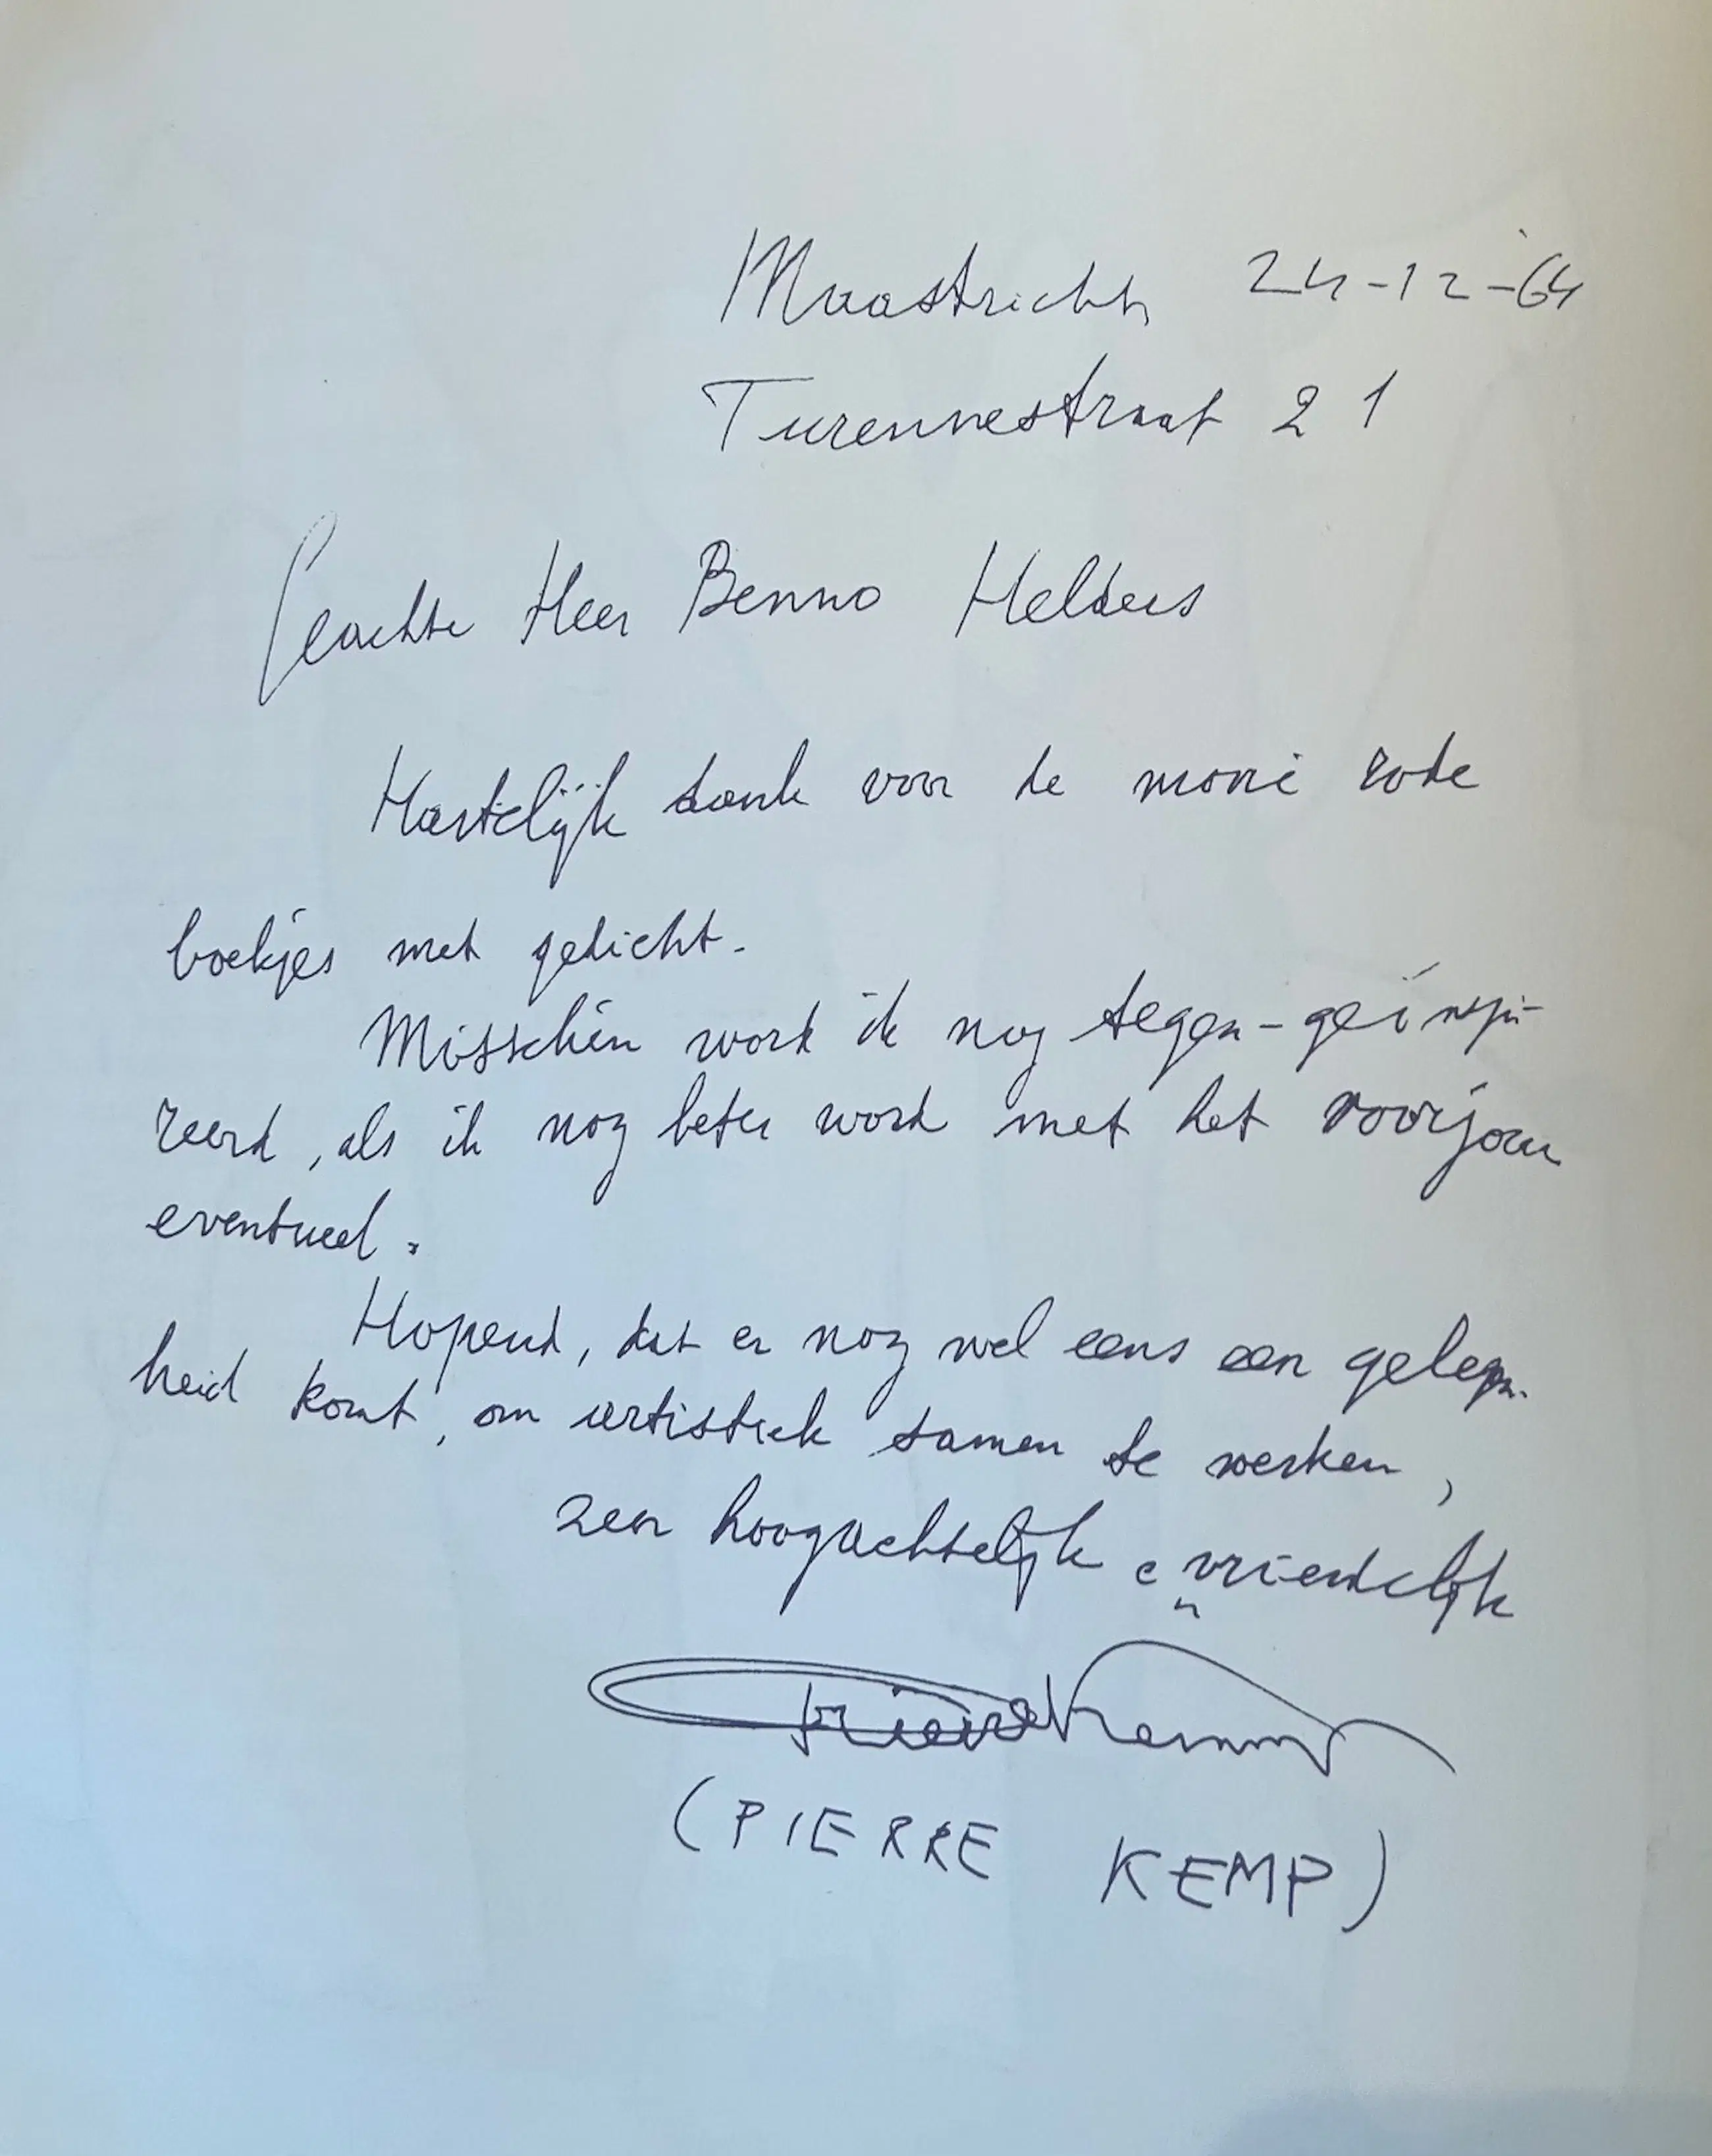 Maastricht, 24-12-'64
Turennestraat 21
Geachte Heer Benno Helders
Hartelijk dank voor de mooie rode
boekjes met gedicht.
Misschien word ik nog tegen-geïnspi-
reerd, als ik nog beter word met het voorjaar
eventueel.
Hopend, dat er nog wel eens een gelegen-
heid komt, om artistiek samen te werken,
zeer hoogachtelijk en vriendelijk
Pierre Kemp
(PIERRE KEMP)